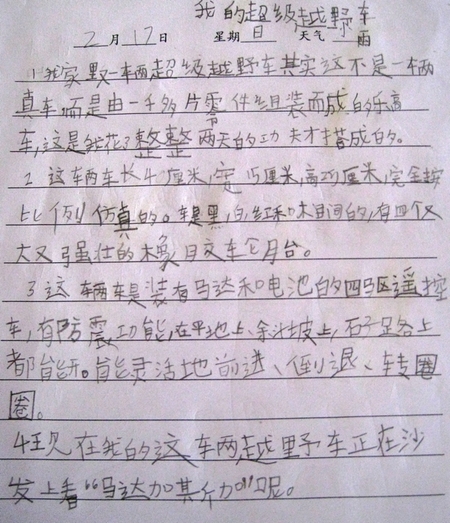 我的超级越野车
2月17日 星期日 天气雨
1我家买一辆超级越野车其实这不是一辆
真车而是由一千多片零件组装而成的乐高
车,这是我花了整整两天的功夫才搭成的。
2 这车两车长4厘米,宽15厘米,高厘米,完全按
比例仿真的。车是黑,白,红和相间的,有四个又
大又强壮的橡皮车轮胎。
3 这辆车是装有马达和电池的四驱遥控
车,有防震功能,在平地上、余斗坡上,石子路上
都能开。能灵活地前进、倒退、转圈
圈。
4现在我的这车两越野车正在沙
发上看“马达加其斤加”呢。